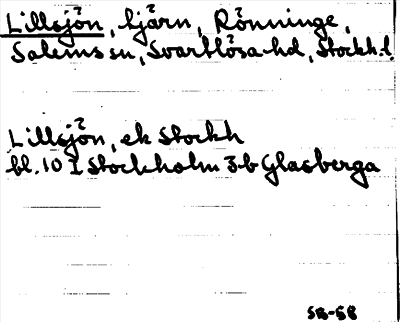 Lillsjön, tjärn, Rönninge,
Salems sn, Svartlösa hd, Stockh.l.
Lillsjön, ek Stockh
bl. 10 I Stockholm 3b Glasberga
SB-58